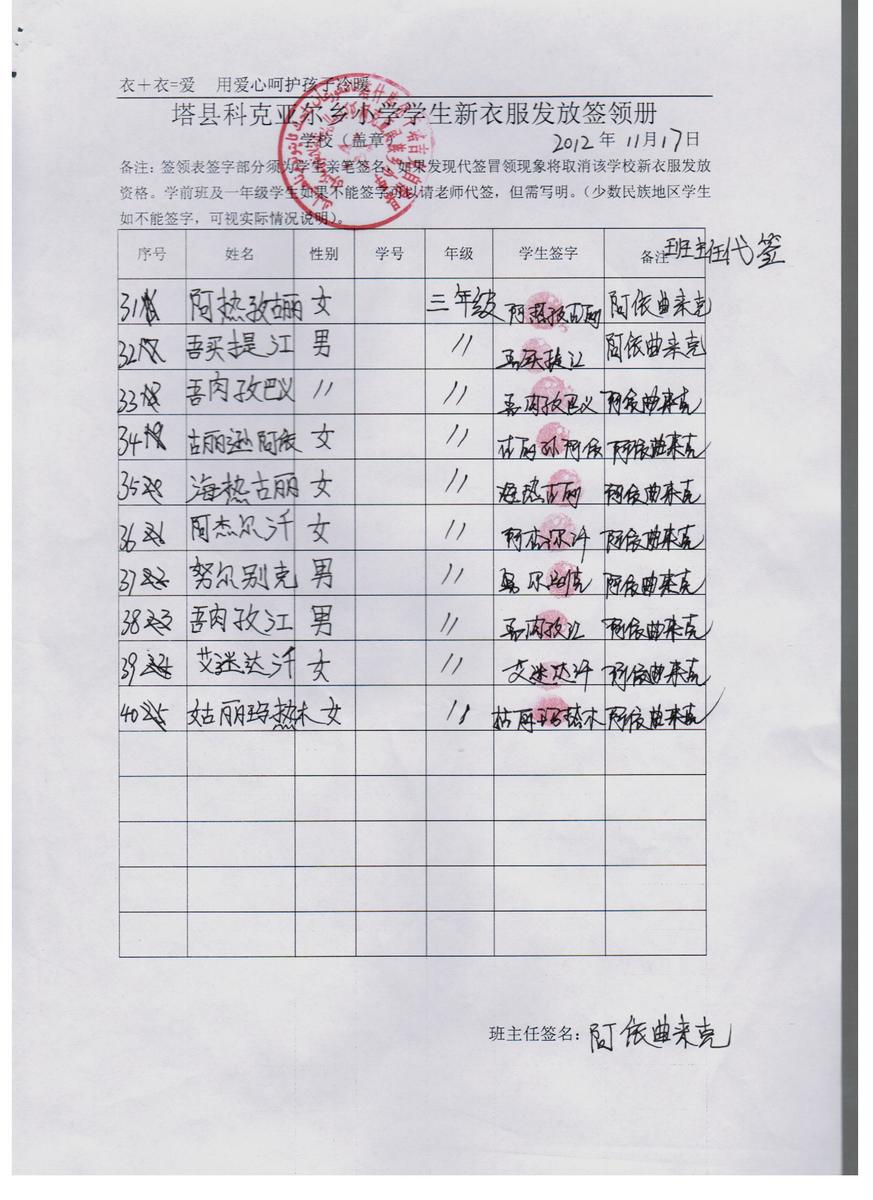 衣＋衣=爱 用爱心呵护孩子冷暖
塔县科克亚尔乡小学学生新衣服发放签领册
学校（盖章） 2012 年 11 月 17 日
备注：签领表签字部分须为学生亲笔签名，如果发现代签冒领现象将取消该学校新衣服发放
资格。学前班及一年级学生如果不能签字可以请老师代签，但需写明。（少数民族地区学生
如不能签字，可视实际情况说明）。
序号 姓名 性别 学号 年级 学生签字 备注 班主任代签
31 阿热孜古丽 女 三年级 阿热孜古丽 阿依曲来克
32 吾买提江 男 〃 吾买提江 阿依曲来克
33 吾肉孜巴义 〃 〃 吾肉孜巴义 阿依曲来克
34 古丽逊阿依 女 〃 古丽孙阿依 阿依曲来克
35 海热古丽 女 〃 海热古丽 阿依曲来克
36 阿杰尔汗 女 〃 阿杰尔汗 阿依曲来克
37 努尔别克 男 〃 努尔别克 阿依曲来克
38 吾肉孜江 男 〃 吾肉孜江 阿依曲来克
39 艾迷达汗 女 〃 艾迷达汗 阿依曲来克
40 姑丽玛热木 女 〃 姑丽玛热木 阿依曲来克
班主任签名：阿依曲来克